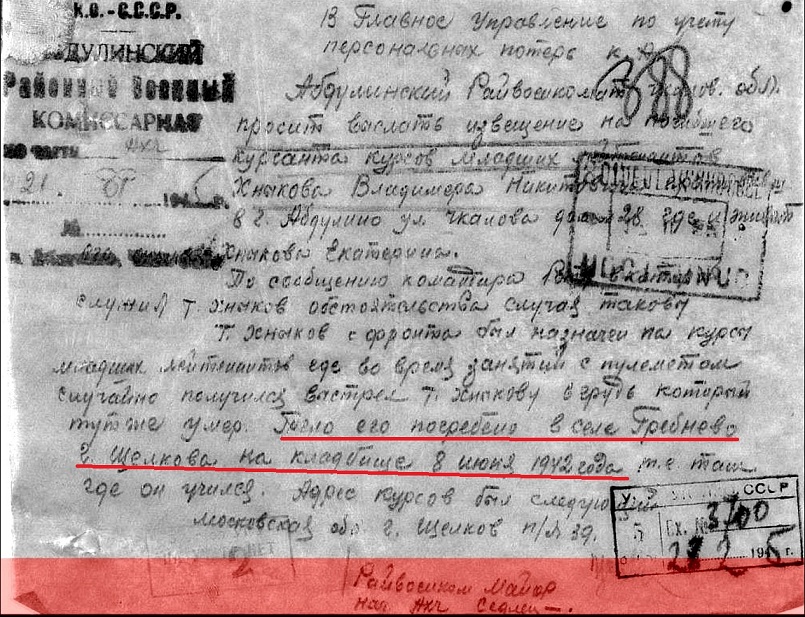 К.О.-С.С.С.Р.
АБДУЛИНСКИЙ
Районный Военный
КОМИССАРИАТ
по части АХЧ
21.
№
В Главное Управление по учету
персональных потерь К.А.
Абдулинский Райвоенкомат Чкалов. обл.
просит выслать извещение на погибшего
курсанта курсов младших лейтенантов
Хныкова Владимера Никитовича
в г. Абдулино ул Чкалова дом 28 где и живет
Хныкова Екатерина.
По сообщению командира Роты в которой
служил т. Хныков обстоятельства случая таковы
Т. Хныков с фронта был назначен на курсы
младших лейтенантов где во время занятий с пулеметом
случайно получился выстрел т. Хныкову в грудь который
тут же умер. Тело его погребено в селе Гребнево
г. Щелкова на кладбище 8 июня 1942 года т.е. там
где он учился. Адрес курсов был следующий
Московская обл. г. Щелков п/я 39.
СССР
Вх. № 3700
2 194 г.
Райвоенком Майор
нач АХЧ Седлец